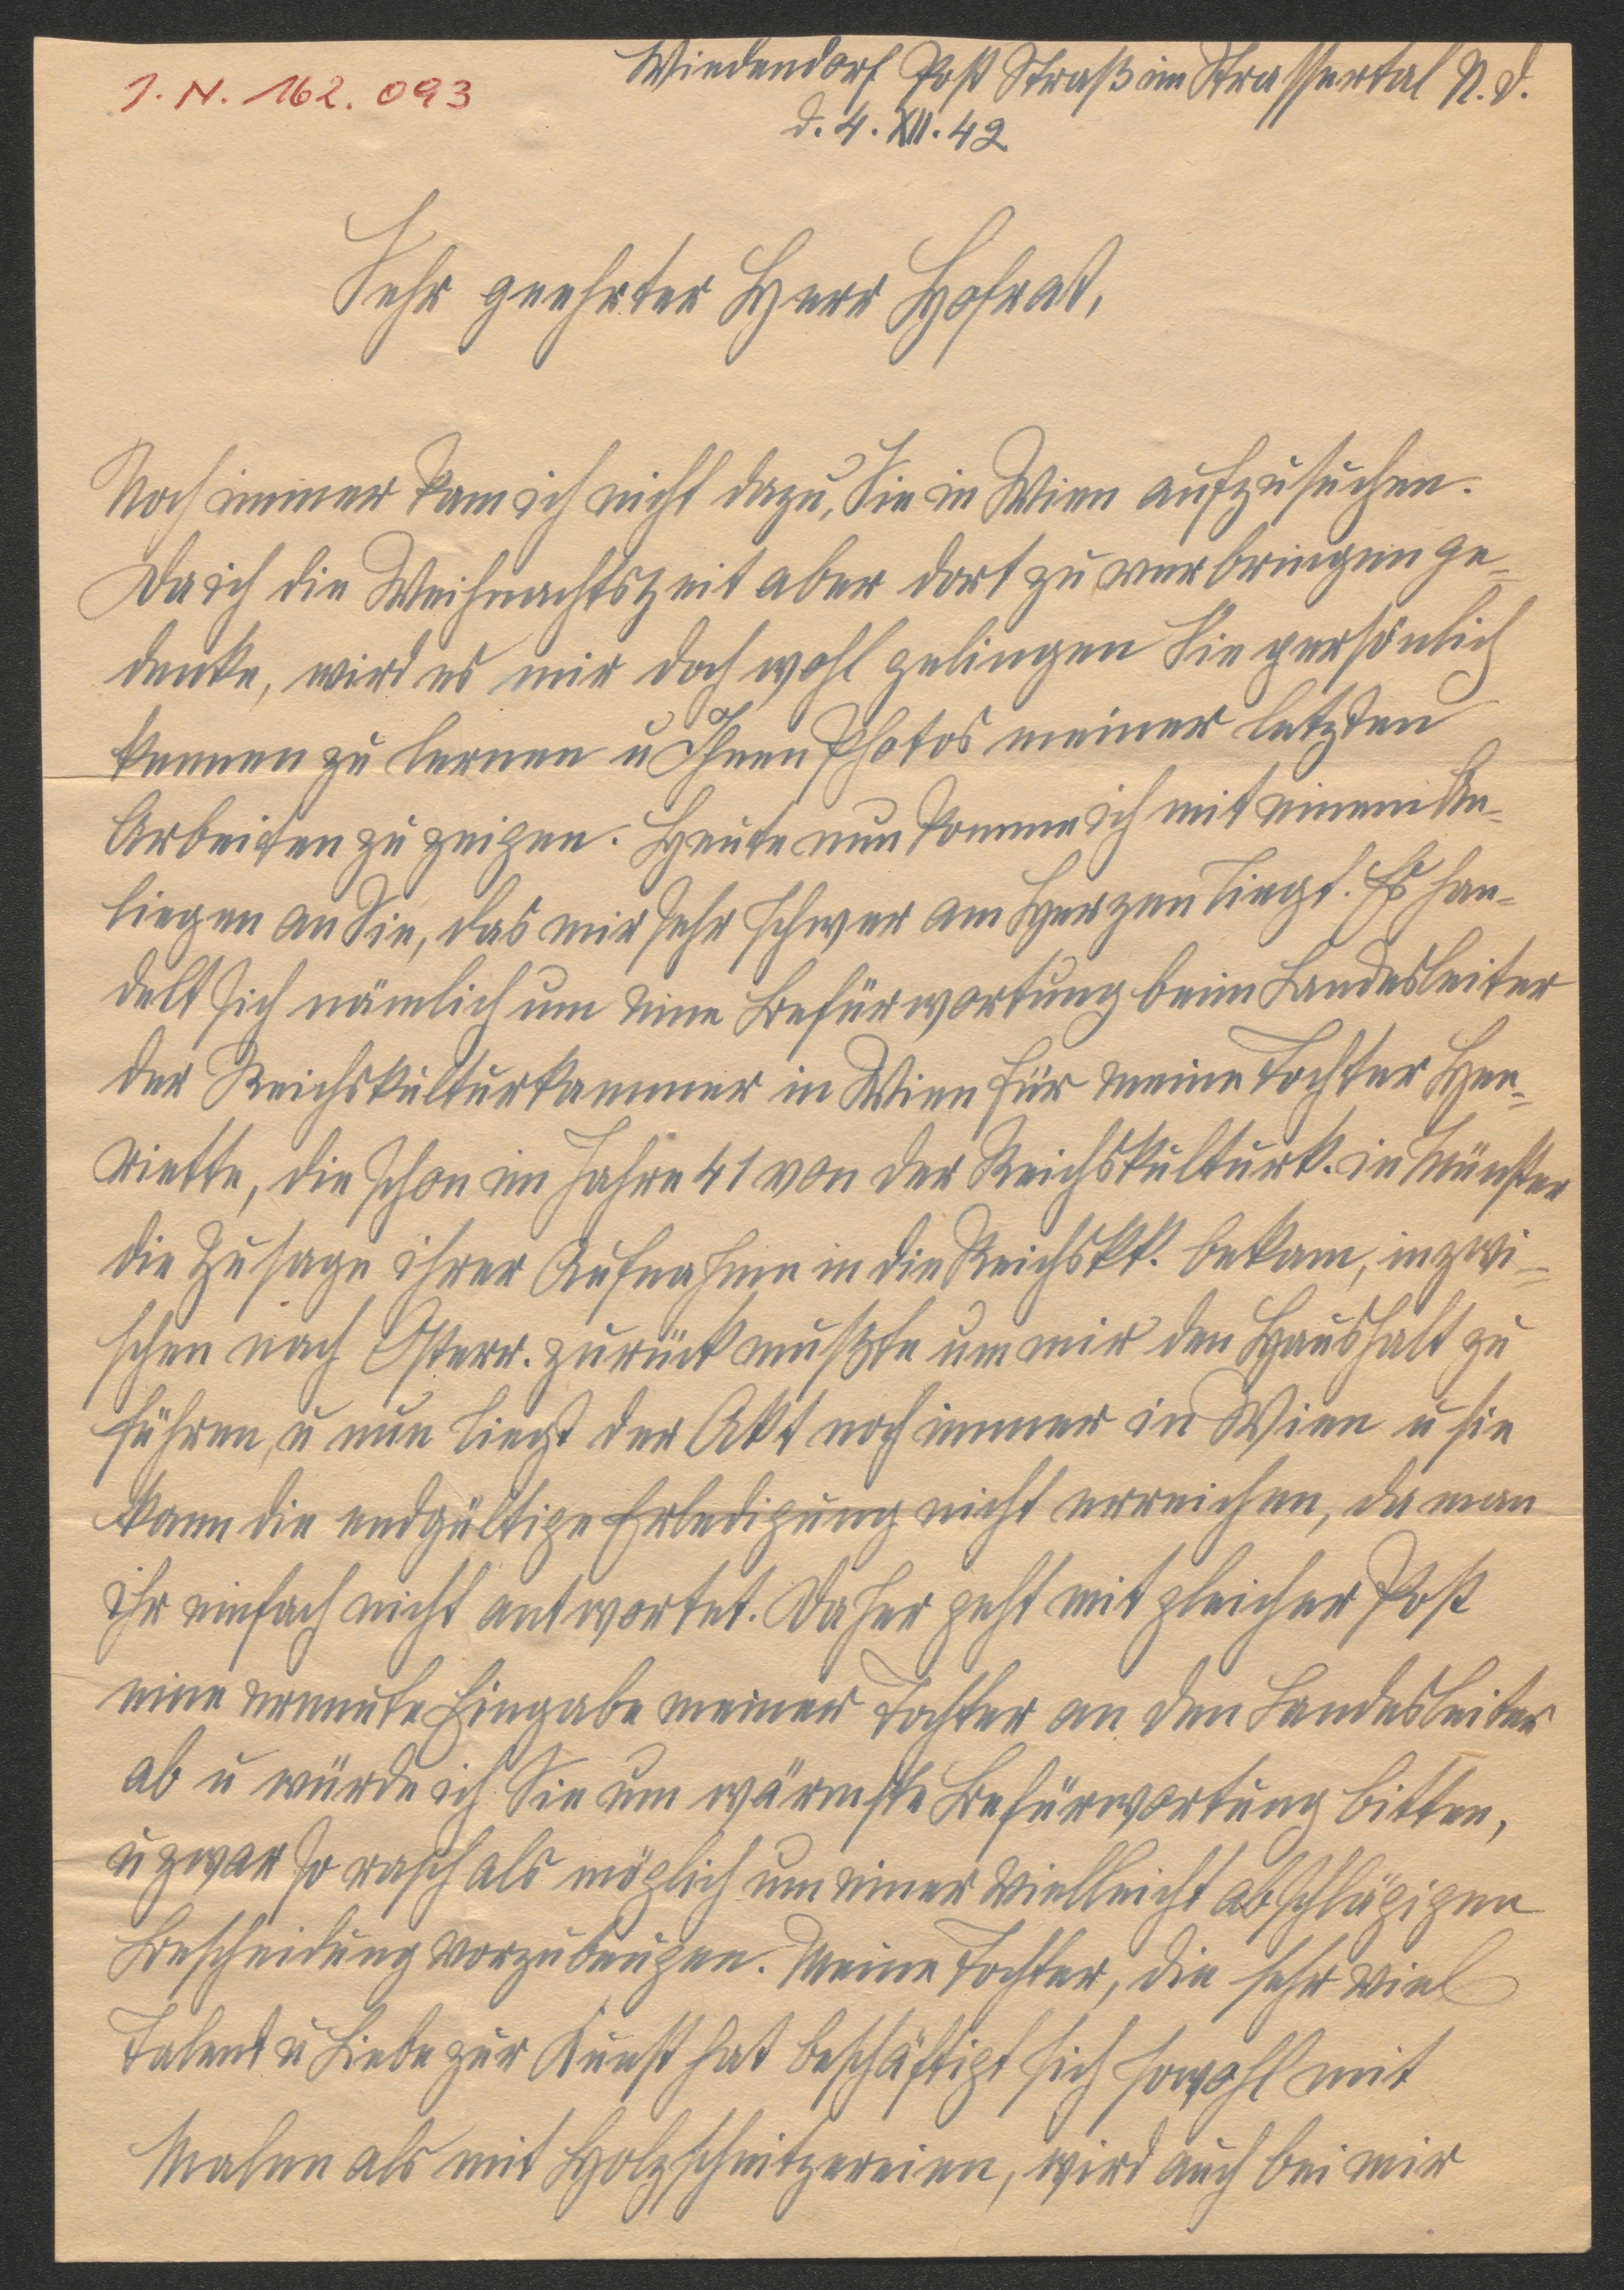 J. N. 162.093
Wiedendorf Post Straß im Strassertal N. D.
d. 4. XII. 42
Sehr geehrter Herr Hofrat,
Noch immer kam ich nicht dazu, Sie in Wien aufzusuchen.
Da ich die Weihnachtszeit aber dort zu verbringen ge-
denke, wird es mir doch wohl gelingen Sie persönlich
kennen zu lernen u Ihnen Photos meiner letzten
Arbeiten zu zeigen. Heute nun komme ich mit einem An-
liegen an Sie, das mir sehr schwer am Herzen liegt. Es han-
delt sich nämlich um eine Befürwortung beim Landesleiter
der Reichskulturkammer in Wien für meine Tochter Hen-
riette, die schon im Jahre 41 von der Reichskulturk. in Münster
die Zusage ihrer Aufnahme in die Reichskk. bekam, inzwi-
schen nach Österr. zurück mußte um mir den Haushalt zu
führen, u nun liegt der Akt noch immer in Wien u sie
kann die endgültige Erledigung nicht erreichen, da man
ihr einfach nicht antwortet. Daher geht mit gleicher Post
eine erneute Eingabe meiner Tochter an den Landesleiter
ab u würde ich Sie um wärmste Befürwortung bitten,
u zwar so rasch als möglich um einer vielleicht abschlägigen
Bescheidung vorzubeugen. Meine Tochter, die sehr viel
Talent u Liebe zur Kunst hat beschäftigt sich sowohl mit
Malen als mit Holzschnitzereien, wird auch bei mir